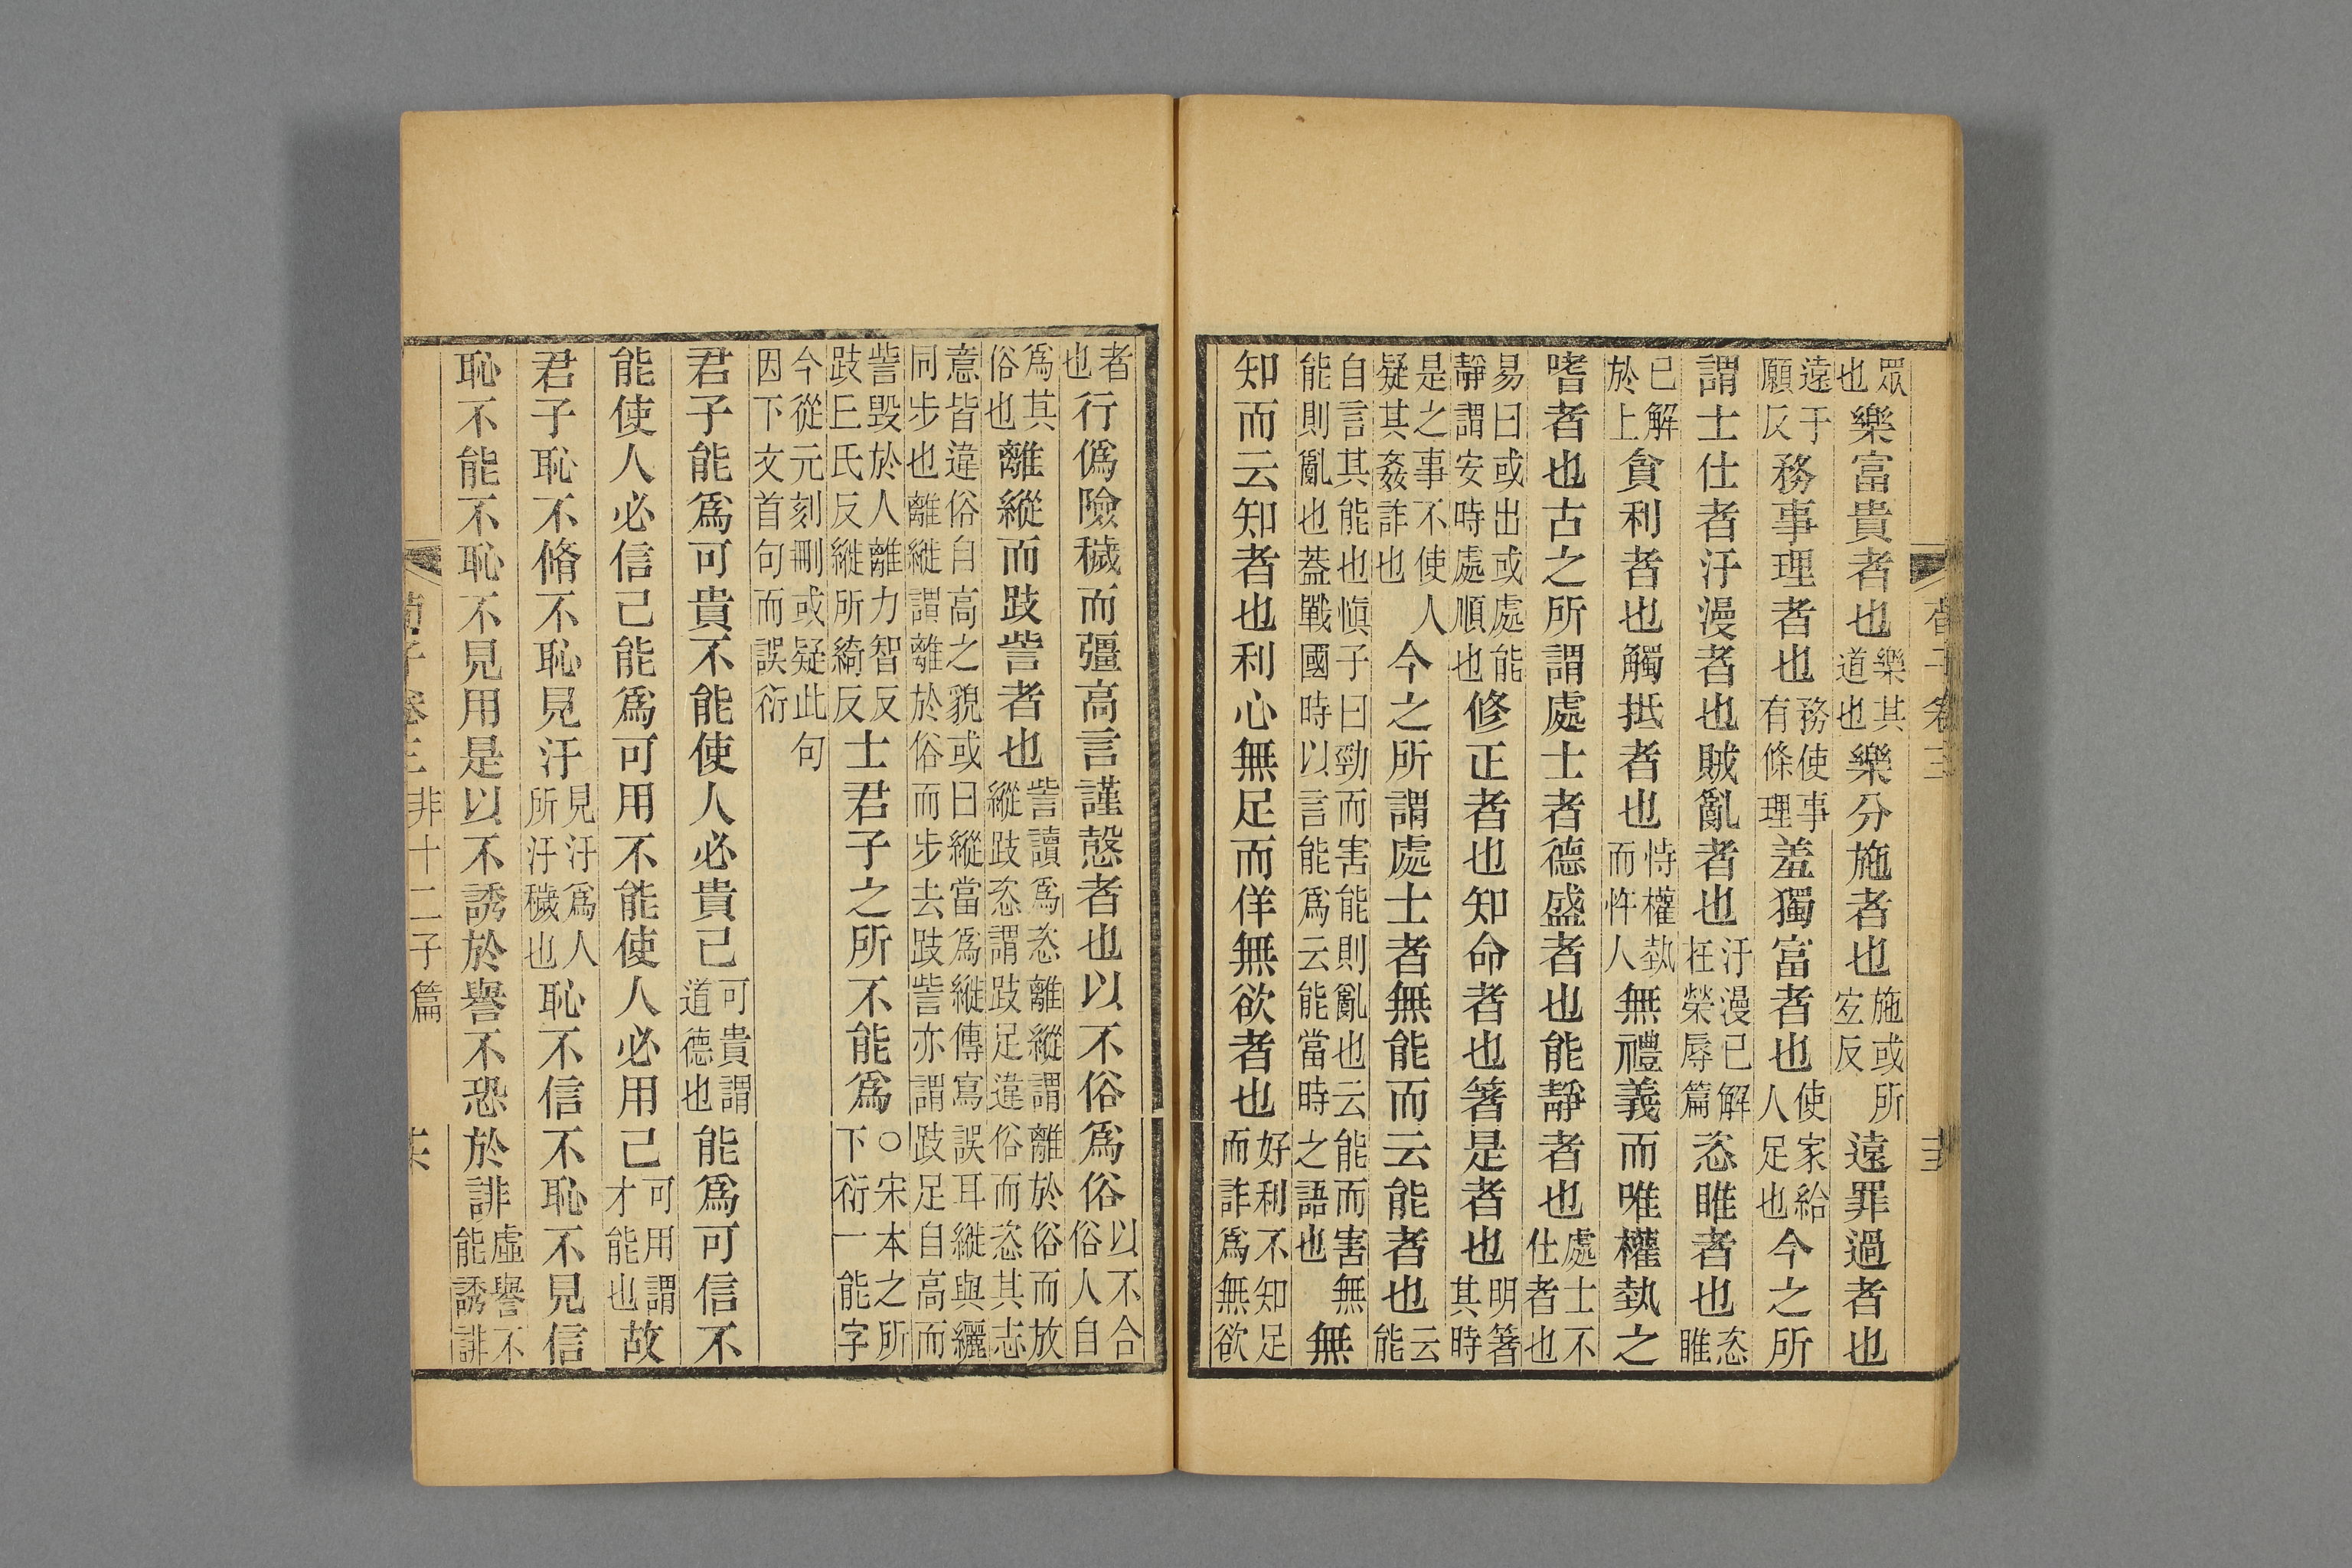 荀子卷三
眾也樂富貴者也樂其道也樂分施者也施或所宐反遠罪過者也
遠于願反務事理者也務使事有條理羞獨富者也使家給人足也今之所
謂士仕者汙漫者也賊亂者也汙漫已解在榮辱篇恣睢者也恣睢
已解於上貪利者也觸抵者也恃權埶而忤人無禮義而唯權埶之
嗜者也古之所謂處士者德盛者也能靜者也處士不仕者也
易曰或出或處能靜謂安時處順也修正者也知命者也箸是者也明箸其時
是之事不使人疑其姦詐也今之所謂處士者無能而云能者也云能
自言其能也慎子曰勁而害能則亂也云能而害無能則亂也蓋戰國時以言能爲云能當時之語也無
知而云知者也利心無足而佯無欲者也好利不知足而詐爲無欲
者也行僞險穢而彊高言謹慤者也以不俗爲俗以不合俗人自
爲其俗也離縱而跂訾者也訾讀爲恣離縱謂離於俗而放縱跂恣謂跂足違俗而恣其志
意皆違俗自高之貌或曰縱當爲縰傳寫誤耳縰與纚同步也離縰謂離於俗而步去跂訾亦謂跂足自高而
訾毀於人離力智反跂丘氏反縰所綺反士君子之所不能爲○宋本之所下衍一能字
今從元刻刪或疑此句因下文首句而誤衍
君子能爲可貴不能使人必貴己可貴謂道德也能爲可信不
能使人必信己能爲可用不能使人必用己可用謂才能也故
君子恥不脩不恥見汙見汙爲人所汙穢也恥不信不恥不見信
恥不能不恥不見用是以不誘於譽不恐於誹虛譽不能誘誹
荀子卷三非十二子篇